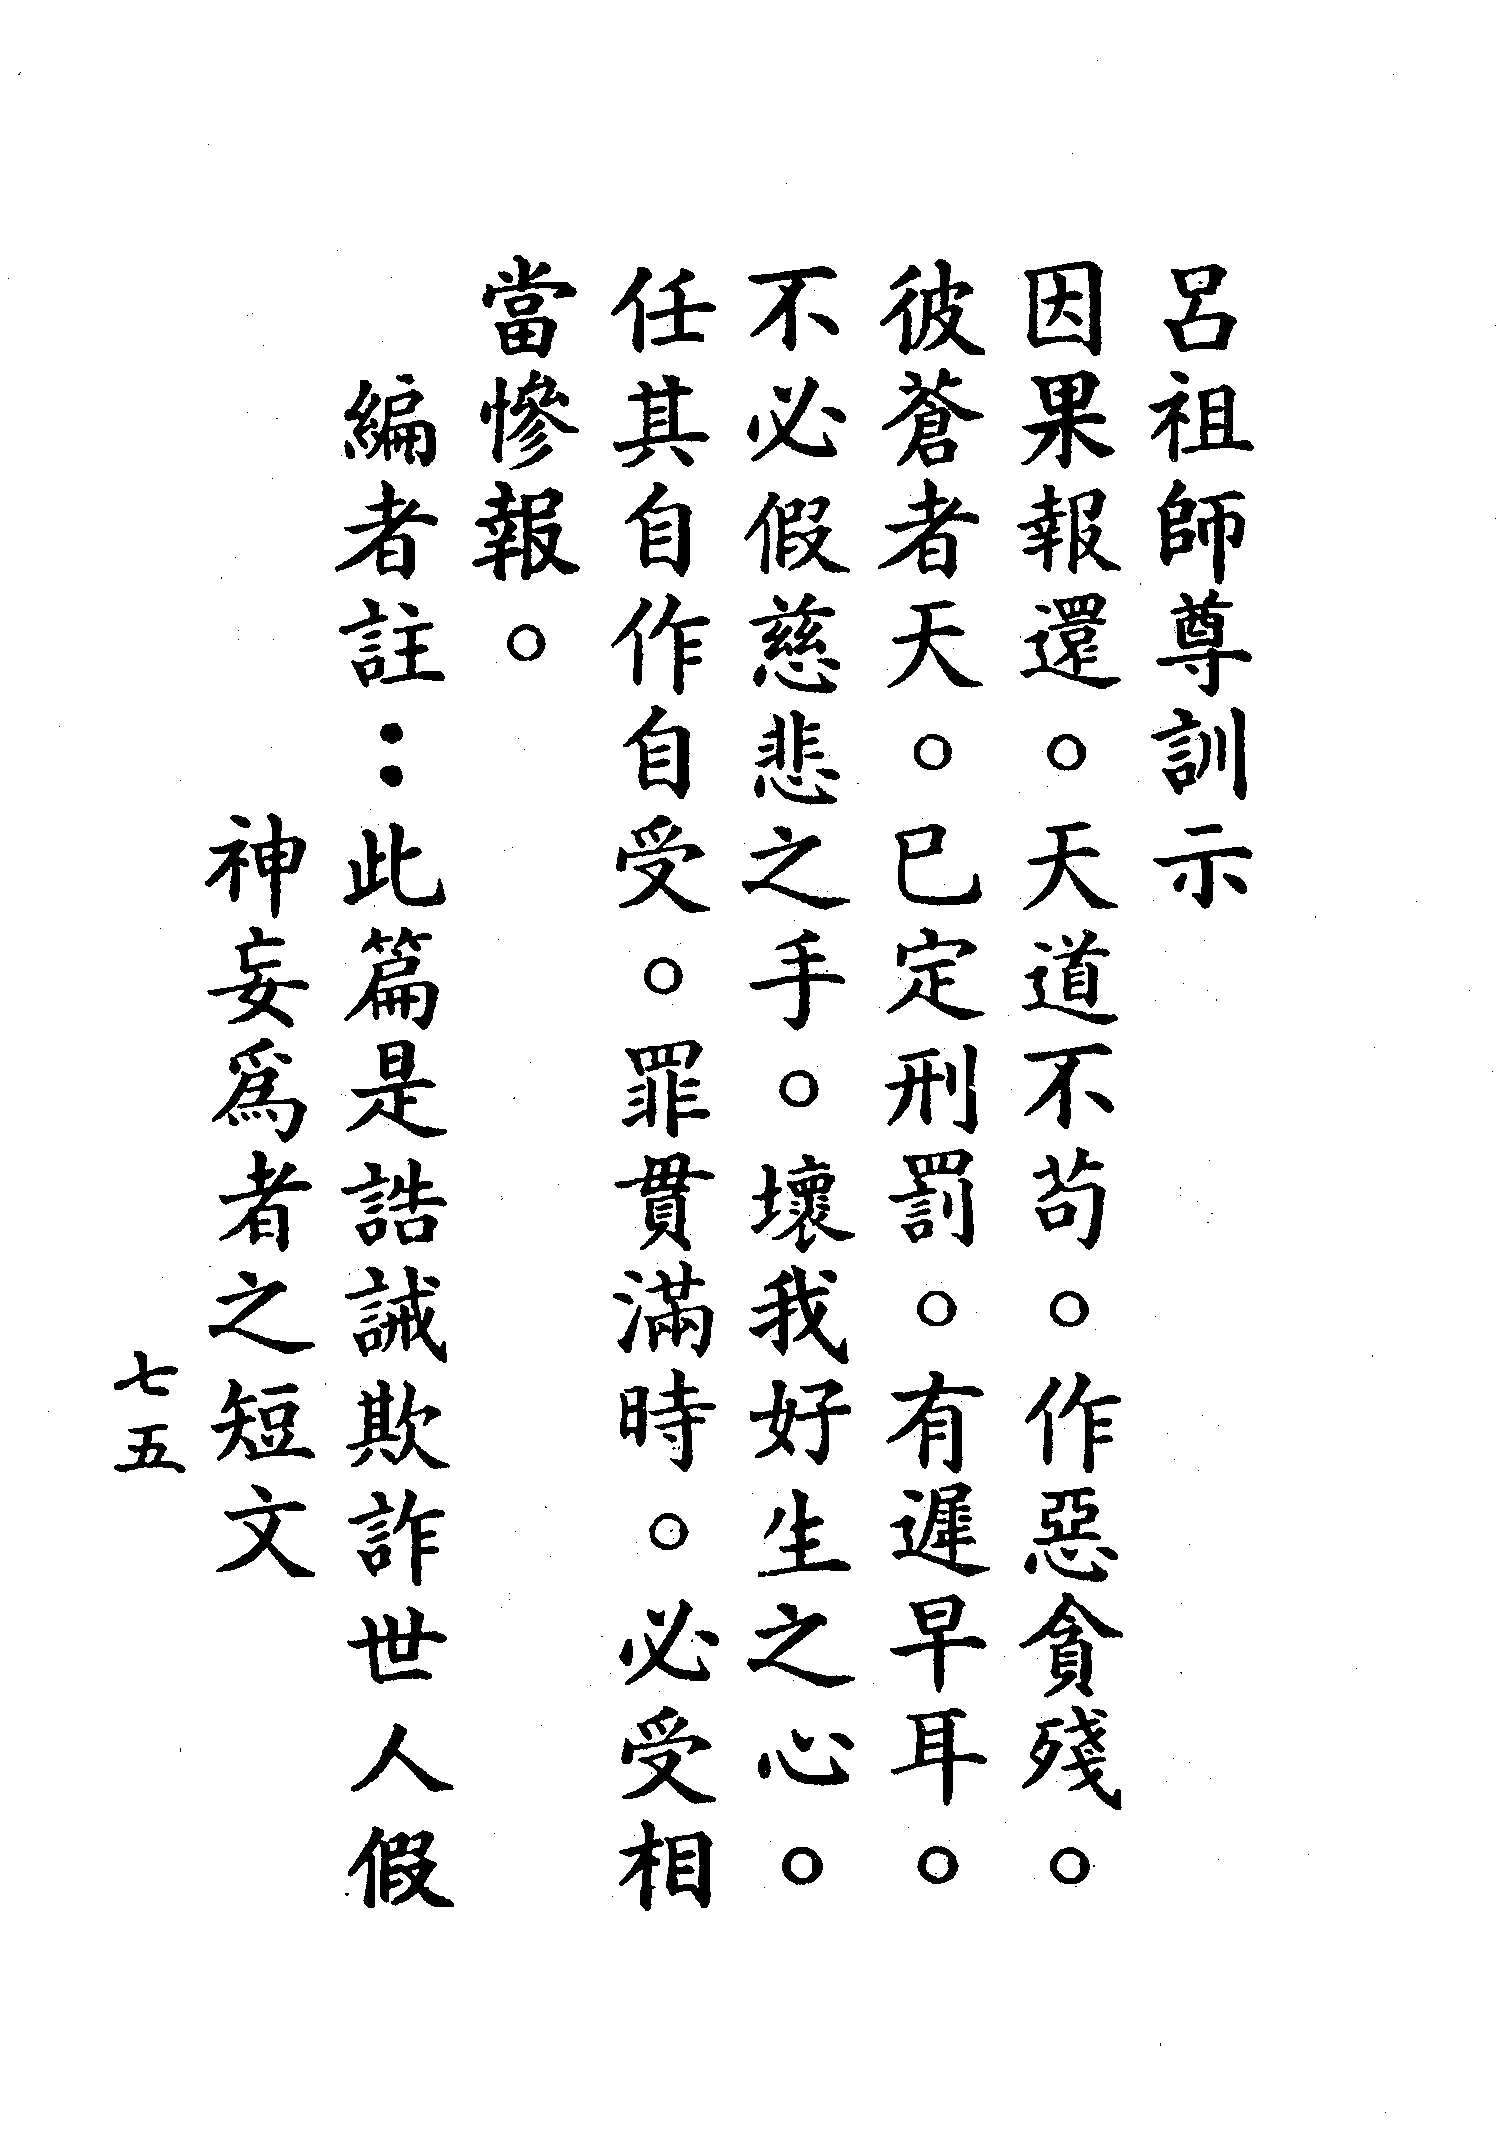 呂祖師尊訓示
因果報還。天道不苟。作惡貪殘。
彼蒼者天。已定刑罰。有遲早耳。
不必假慈悲之手。壞我好生之心。
任其自作自受。罪貫滿時。必受相
當慘報。
編者註：此篇是誥誡欺詐世人假
神妄爲者之短文
七五